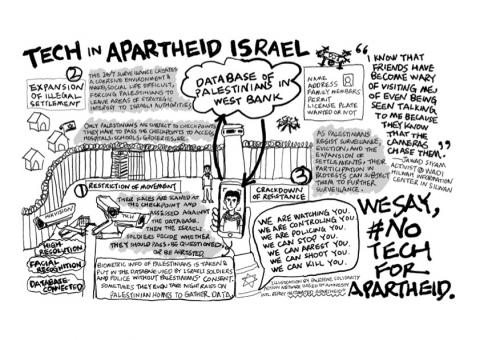 TECH IN APARTHEID ISRAEL
②
EXPANSION
OF ILLEGAL
SETTLEMENT
THE 24/7 SURVEILLANCE CREATES
A COERSIVE ENVIRONMENT &
MAKES SOCIAL LIFE DIFFICULT,
FORCING PALESTINIANS TO
LEAVE AREAS OF STRATEGIC
INTEREST TO ISRAELI AUTHORITIES.
DATABASE OF
PALESTINIANS IN
WEST BANK
NAME
ADDRESS
FAMILY MEMBERS
PERMIT
LICENSE PLATE
WANTED OR NOT
"I KNOW THAT
FRIENDS HAVE
BECOME WARY
OF VISITING ME,
OF EVEN BEING
SEEN TALKING
TO ME BECAUSE
THEY KNOW
THAT THE
CAMERAS
CHASE THEM."
- JAWAD SIYAM
ACTIVIST @ WADI
HILWAH INFORMATION
CENTER IN SILWAN
ONLY PALESTINIANS ARE SUBJECT TO CHECKPOINTS.
THEY HAVE TO PASS THE CHECKPOINTS TO ACCESS
HOSPITALS, SCHOOLS, GROCERIES, ETC.
AS PALESTINIANS
RESIST SURVEILLANCE,
EVICTION, AND THE
EXPANSION OF
SETTLEMENTS, THEIR
PARTICIPATION IN
PROTESTS CAN SUBJECT
THEM TO FURTHER
SURVEILLANCE.
①
RESTRICTION OF MOVEMENT
THEIR FACES ARE SCANNED AT
THE CHECKPOINT AND
ASSESSED AGAINST
THE DATABASE.
THEN THE ISRAELI
SOLDIERS DECIDE WHETHER
THEY SHOULD PASS, BE QUESTIONED
OR BE ARRESTED.
HIKVISION
TKH
HIGH-
RESOLUTION
FACIAL
RECOGNITION
DATABASE-
CONNECTED
BIOMETRIC INFO OF PALESTINIANS IS TAKEN &
PUT IN THE DATABASE USED BY ISRAELI SOLDIERS
AND POLICE WITHOUT PALESTINIANS' CONSENT.
SOMETIMES THEY EVEN TAKE NIGHT RAIDS ON
PALESTINIAN HOMES TO GATHER DATA.
③
CRACKDOWN
OF RESISTANCE
WE ARE WATCHING YOU.
WE ARE CONTROLING YOU
WE ARE POLICING YOU.
WE CAN STOP YOU.
WE CAN ARREST YOU.
WE CAN SHOOT YOU.
WE CAN KILL YOU.
WE SAY,
#NO
TECH
FOR
APARTHEID.
ILLUSTRATION BY PALESTINE SOLIDARITY
ACTION NETWORK BASED ON AMNESTY
INTL REPORT "AUTOMATED APARTHEID"